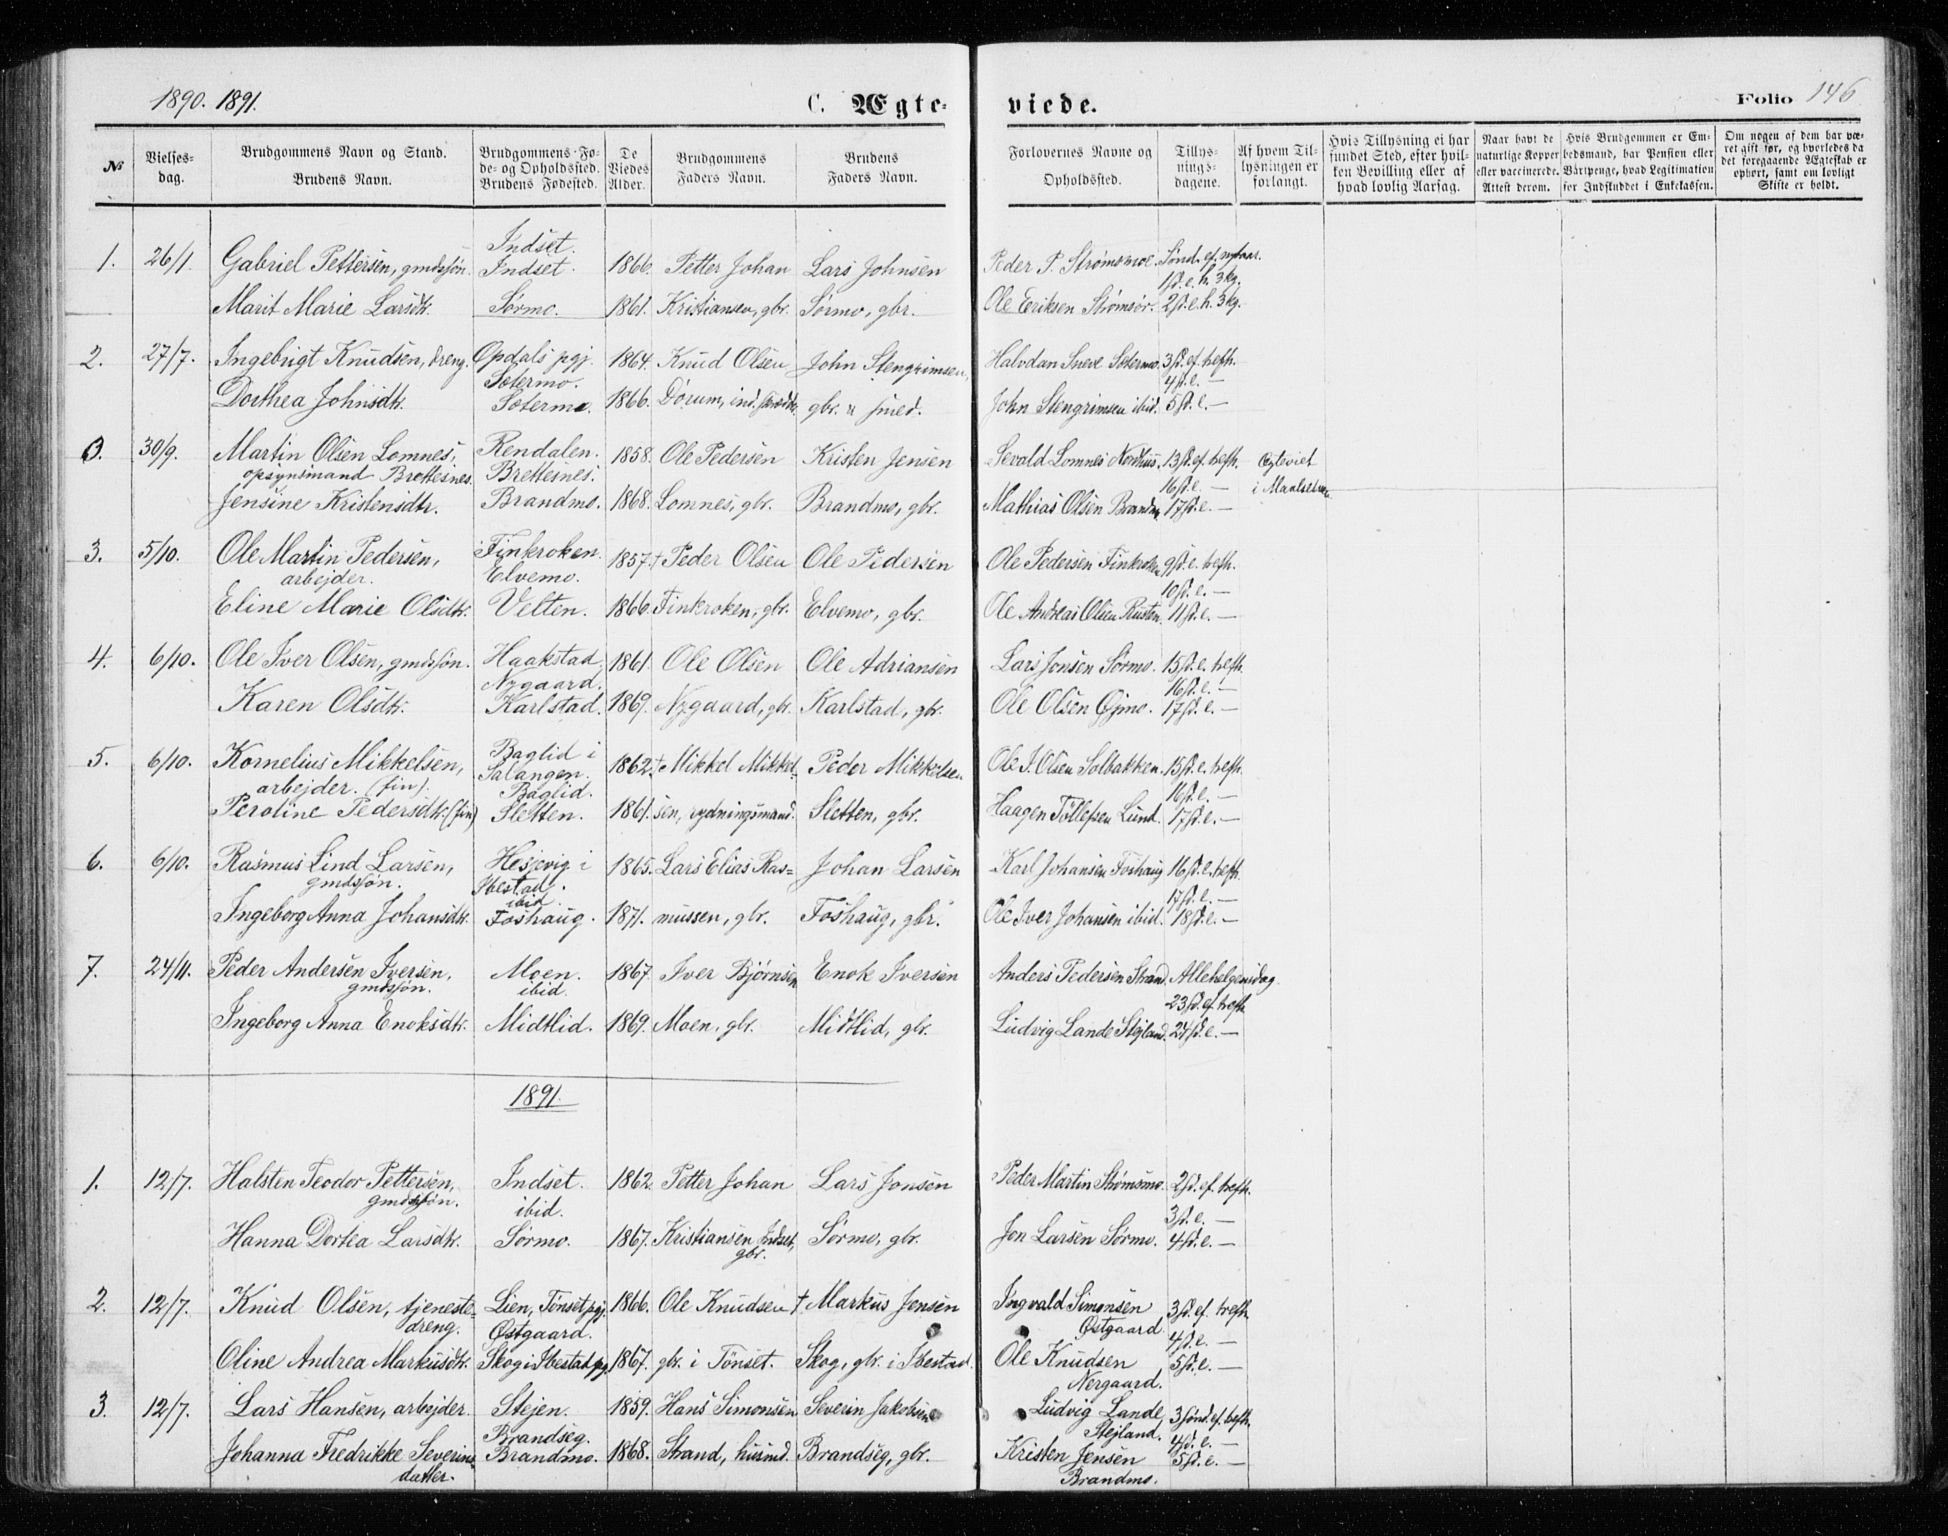 1890. 1891.
C. Ægteviede.
Folio 146
№
Vielsesdag.
Brudgommens Navn og Stand.
Brudens Navn.
Brudgommens Føde- og Opholdssted.
Brudens Fødested.
De Viedes Alder.
Brudgommens Faders Navn.
Brudens Faders Navn.
Forlovernes Navne og Opholdssted.
Tillysningsdagene.
Af hvem Tillysningen er forlangt.
Hvis Tillysning ei har fundet Sted, efter hvilken Bevilling eller af hvad lovlig Aarsag.
Naar havt de naturlige Kopper eller vaccinerede. Attest derom.
Hvis Brudgommen er Embedsmand, har Pension eller Vartpenge, hvad Legitimation for Indskuddet i Enkekassen.
Om nogen af dem har været gift før, og hvorledes da det foregaaende Ægteskab er ophørt, samt om lovligt Skifte er holdt.
Indset.
1. 26/1. Gabriel Pettersen, gmdssøn. Indset. 1866. Petter Johan Lars Johnsen Peder P. Strømsmoe. Sønd. ef. nytaar.
1 s. e. h. 3 kg.
Marit Marie Larsdtr. Sørmo. 1861. Kristiansen, gbr. Sørmo, gbr. Ole Eriksen Strømsør. 2 s. e. h. 3 kg.
2. 27/7. Ingebrigt Knudsen, dreng. Opdals pgj. 1864. Knud Olsen John Stengrimsen, Halvdan Sneve Sætermo. 3 s. ef. trefh.
Sætermo. 4 s. e. —
Dorthea Johnsdtr. Sætermo. 1866. Dørum, ind. gbr. & smed. John Stengrimsen ibid. 5 s. e. —
3. 30/9. Martin Olsen Lomnes, Rendalen. 1858. Ole Pedersen Kristen Jensen Sevald Lomnes Nordhus. 13 s. ef. trefh. Ægteviet
opsynsmand Brettesnes. Brettesnes. 16 s. e. — i Maalselven
Jensine Kristensdtr. Brandmo. 1868. Lomnes, gbr. Brandmo, gbr. Mathias Olsen Brandmo 17 s. e. —
3. 5/10. Ole Martin Pedersen, Finkroken. 1857. † Peder Olsen Ole Pedersen Ole Pedersen Finkroken 9 s. e. trefh.
arbejder. Elvemo. 10 s. e. —
Eline Marie Olsdtr. Velten. 1866. Finkroken, gbr. Elvemo, gbr. Ole Andreas Olsen Rusten. 11 s. e. —
4. 6/10. Ole Iver Olsen, gmdssøn. Haakstad. 1861. Ole Olsen Ole Adriansen Lars Jonsen Sørmo. 15 s. e. trefh.
Nygaard. 16 s. e. —
Karen Olsdtr. Karlstad. 1869. Nygaard, gbr. Karlstad, gbr. Ole Olsen Gjmo. 17 s. e. —
5. 6/10. Kornelius Mikkelsen, Baglid i Salangen. 1862. † Mikkel Mikkel- Peder Mikkelsen Ole J. Olsen Solbakken. 15 s. e. trefh.
arbejder. (fin). Baglid. 16 s. e. —
Peroline Pedersdtr. (fin) Sletten. 1861. sen, rydningsmand. Sletten, gbr. Haagen Tollefsen Lund. 17 s. e. —
6. 6/10. Rasmus Lind Larsen, Hesjevig i 1865. Lars Elias Ras= Johan Larsen Karl Johansen Foshaug 16 s. e. trefh.
gmdssøn. Ibestad. ibid 17 s. e. —
Ingeborg Anna Johansdtr. Foshaug. 1871. mussen, gbr. Foshaug, gbr. Ole Iver Johansen ibid. 18 s. e. —
7. 24/11. Peder Andersen Iversen, Moen. 1867. Iver Bjørnsen Enok Iversen Anders Pedersen Strand. Allehelgensdag
gmdssøn. ibid. 23 s. ef. trefh.
Ingeborg Anna Enoksdtr. Midtlid. 1869. Moen, gbr. Midtlid, gbr. Ludvig Lande Stejland. 24 s. e. —
1891.
1. 12/7. Halsten Teodor Pettersen, Indset. 1862. Petter Johan Lars Jonsen Peder Martin Strømsmo. 2 s. ef. trefh.
gmdssøn. ibid. 3 s. e. —
Hanna Dortea Larsdtr. Sørmo. 1867. Kristiansen Indset, gbr. Sørmo, gbr. Jon Larsen Sørmo. 4 s. e. —
2. 12/7. Knud Olsen, tjeneste= Lien, Tønset pgj. 1866. Ole Knudsen † Markus Jensen Ingvald Simonsen 3 s. ef. trefh.
dreng. Østgaard. Østgaard 4 s. e. —
Oline Andrea Markusdtr. Skog i Ibestad pgj. 1867. gbr. i Tønset. Skog, gbr. i Ibestad. Ole Knudsen 5 s. e. —
Nergaard.
3. 12/7. Lars Hansen, arbejder. Stejen. 1859. Hans Simonsen Severin Jakobsen Ludvig Lande 3 sønd. ef. trefh.
Brandseg. Stejland. 4 s. e. —
Johanna Fredrikke Severins= Brandmo. 1868. Strand, husmd. Brandseg, gbr. Kristen Jensen 5 s. e. —
datter. Brandmo.